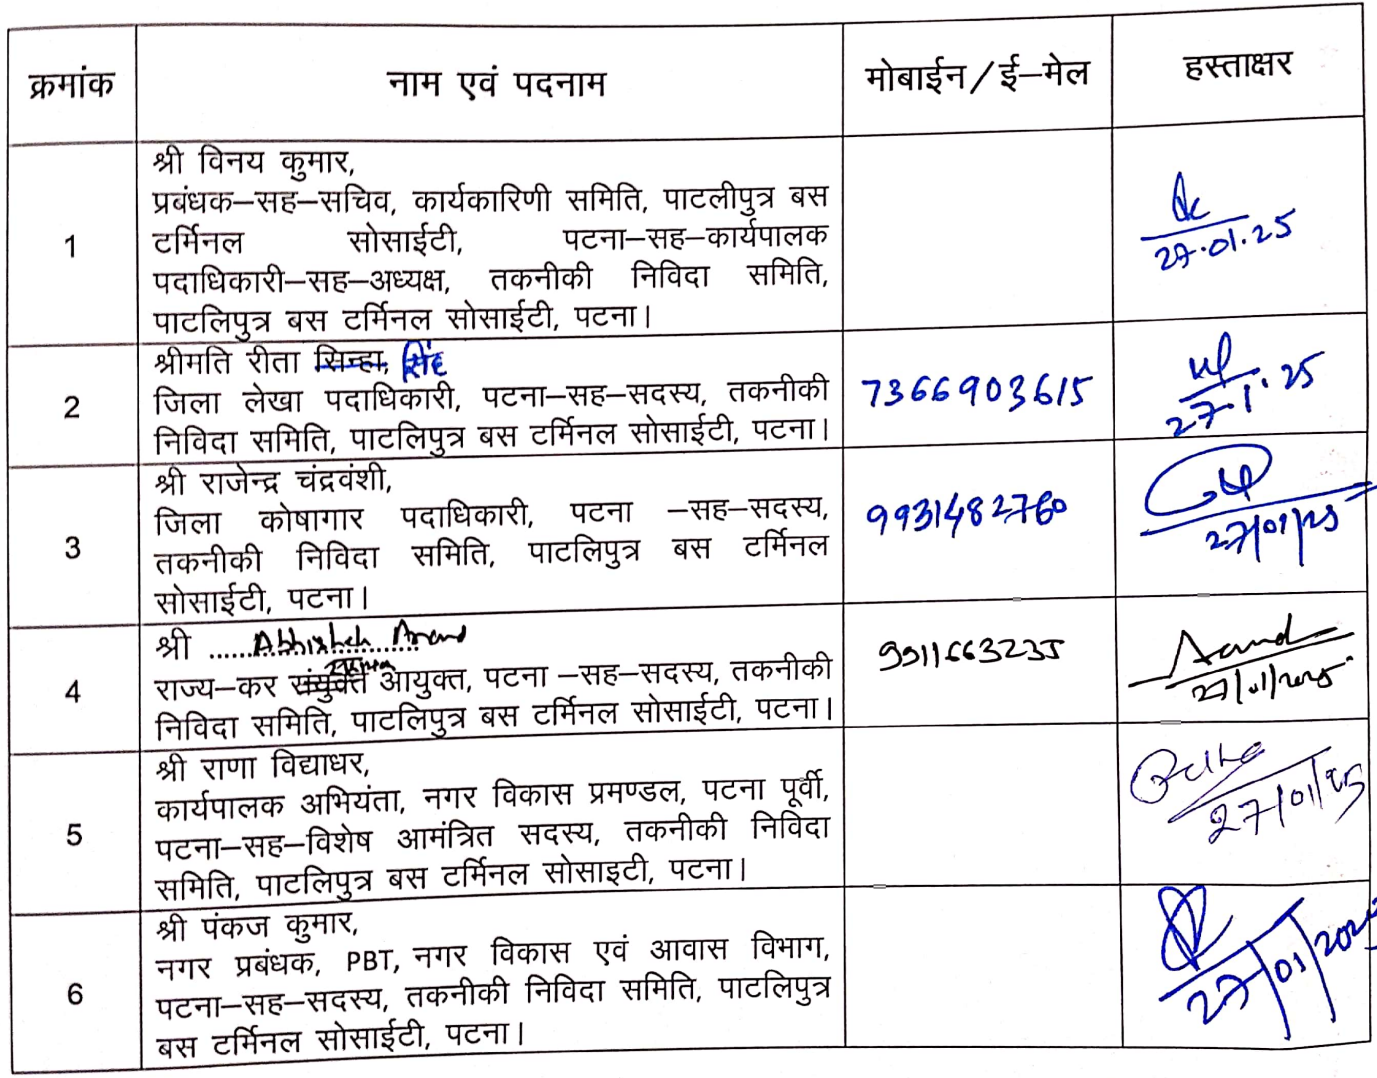 क्रमांक नाम एवं पदनाम मोबाईन/ई–मेल हस्ताक्षर
श्री विनय कुमार,
प्रबंधक–सह–सचिव, कार्यकारिणी समिति, पाटलीपुत्र बस
1 टर्मिनल सोसाईटी, पटना–सह–कार्यपालक
पदाधिकारी–सह–अध्यक्ष, तकनीकी निविदा समिति,
पाटलिपुत्र बस टर्मिनल सोसाईटी, पटना।
27.01.25
श्रीमति रीता सिन्हा, सिंह
2 जिला लेखा पदाधिकारी, पटना–सह–सदस्य, तकनीकी 7366903615
निविदा समिति, पाटलिपुत्र बस टर्मिनल सोसाईटी, पटना।
27.1.25
श्री राजेन्द्र चंद्रवंशी,
जिला कोषागार पदाधिकारी, पटना –सह–सदस्य, 9931482760
3 तकनीकी निविदा समिति, पाटलिपुत्र बस टर्मिनल
सोसाईटी, पटना।
27/01/25
श्री ....Abhishek Anand
4 राज्य–कर संयुक्त आयुक्त, पटना –सह–सदस्य, तकनीकी 9911663235
निविदा समिति, पाटलिपुत्र बस टर्मिनल सोसाईटी, पटना।
Aand
27/01/2025
श्री राणा विद्याधर,
कार्यपालक अभियंता, नगर विकास प्रमण्डल, पटना पूर्वी,
5 पटना–सह–विशेष आमंत्रित सदस्य, तकनीकी निविदा
समिति, पाटलिपुत्र बस टर्मिनल सोसाइटी, पटना।
27/01/25
श्री पंकज कुमार,
नगर प्रबंधक, PBT, नगर विकास एवं आवास विभाग,
6 पटना–सह–सदस्य, तकनीकी निविदा समिति, पाटलिपुत्र
बस टर्मिनल सोसाईटी, पटना।
27/01/2025